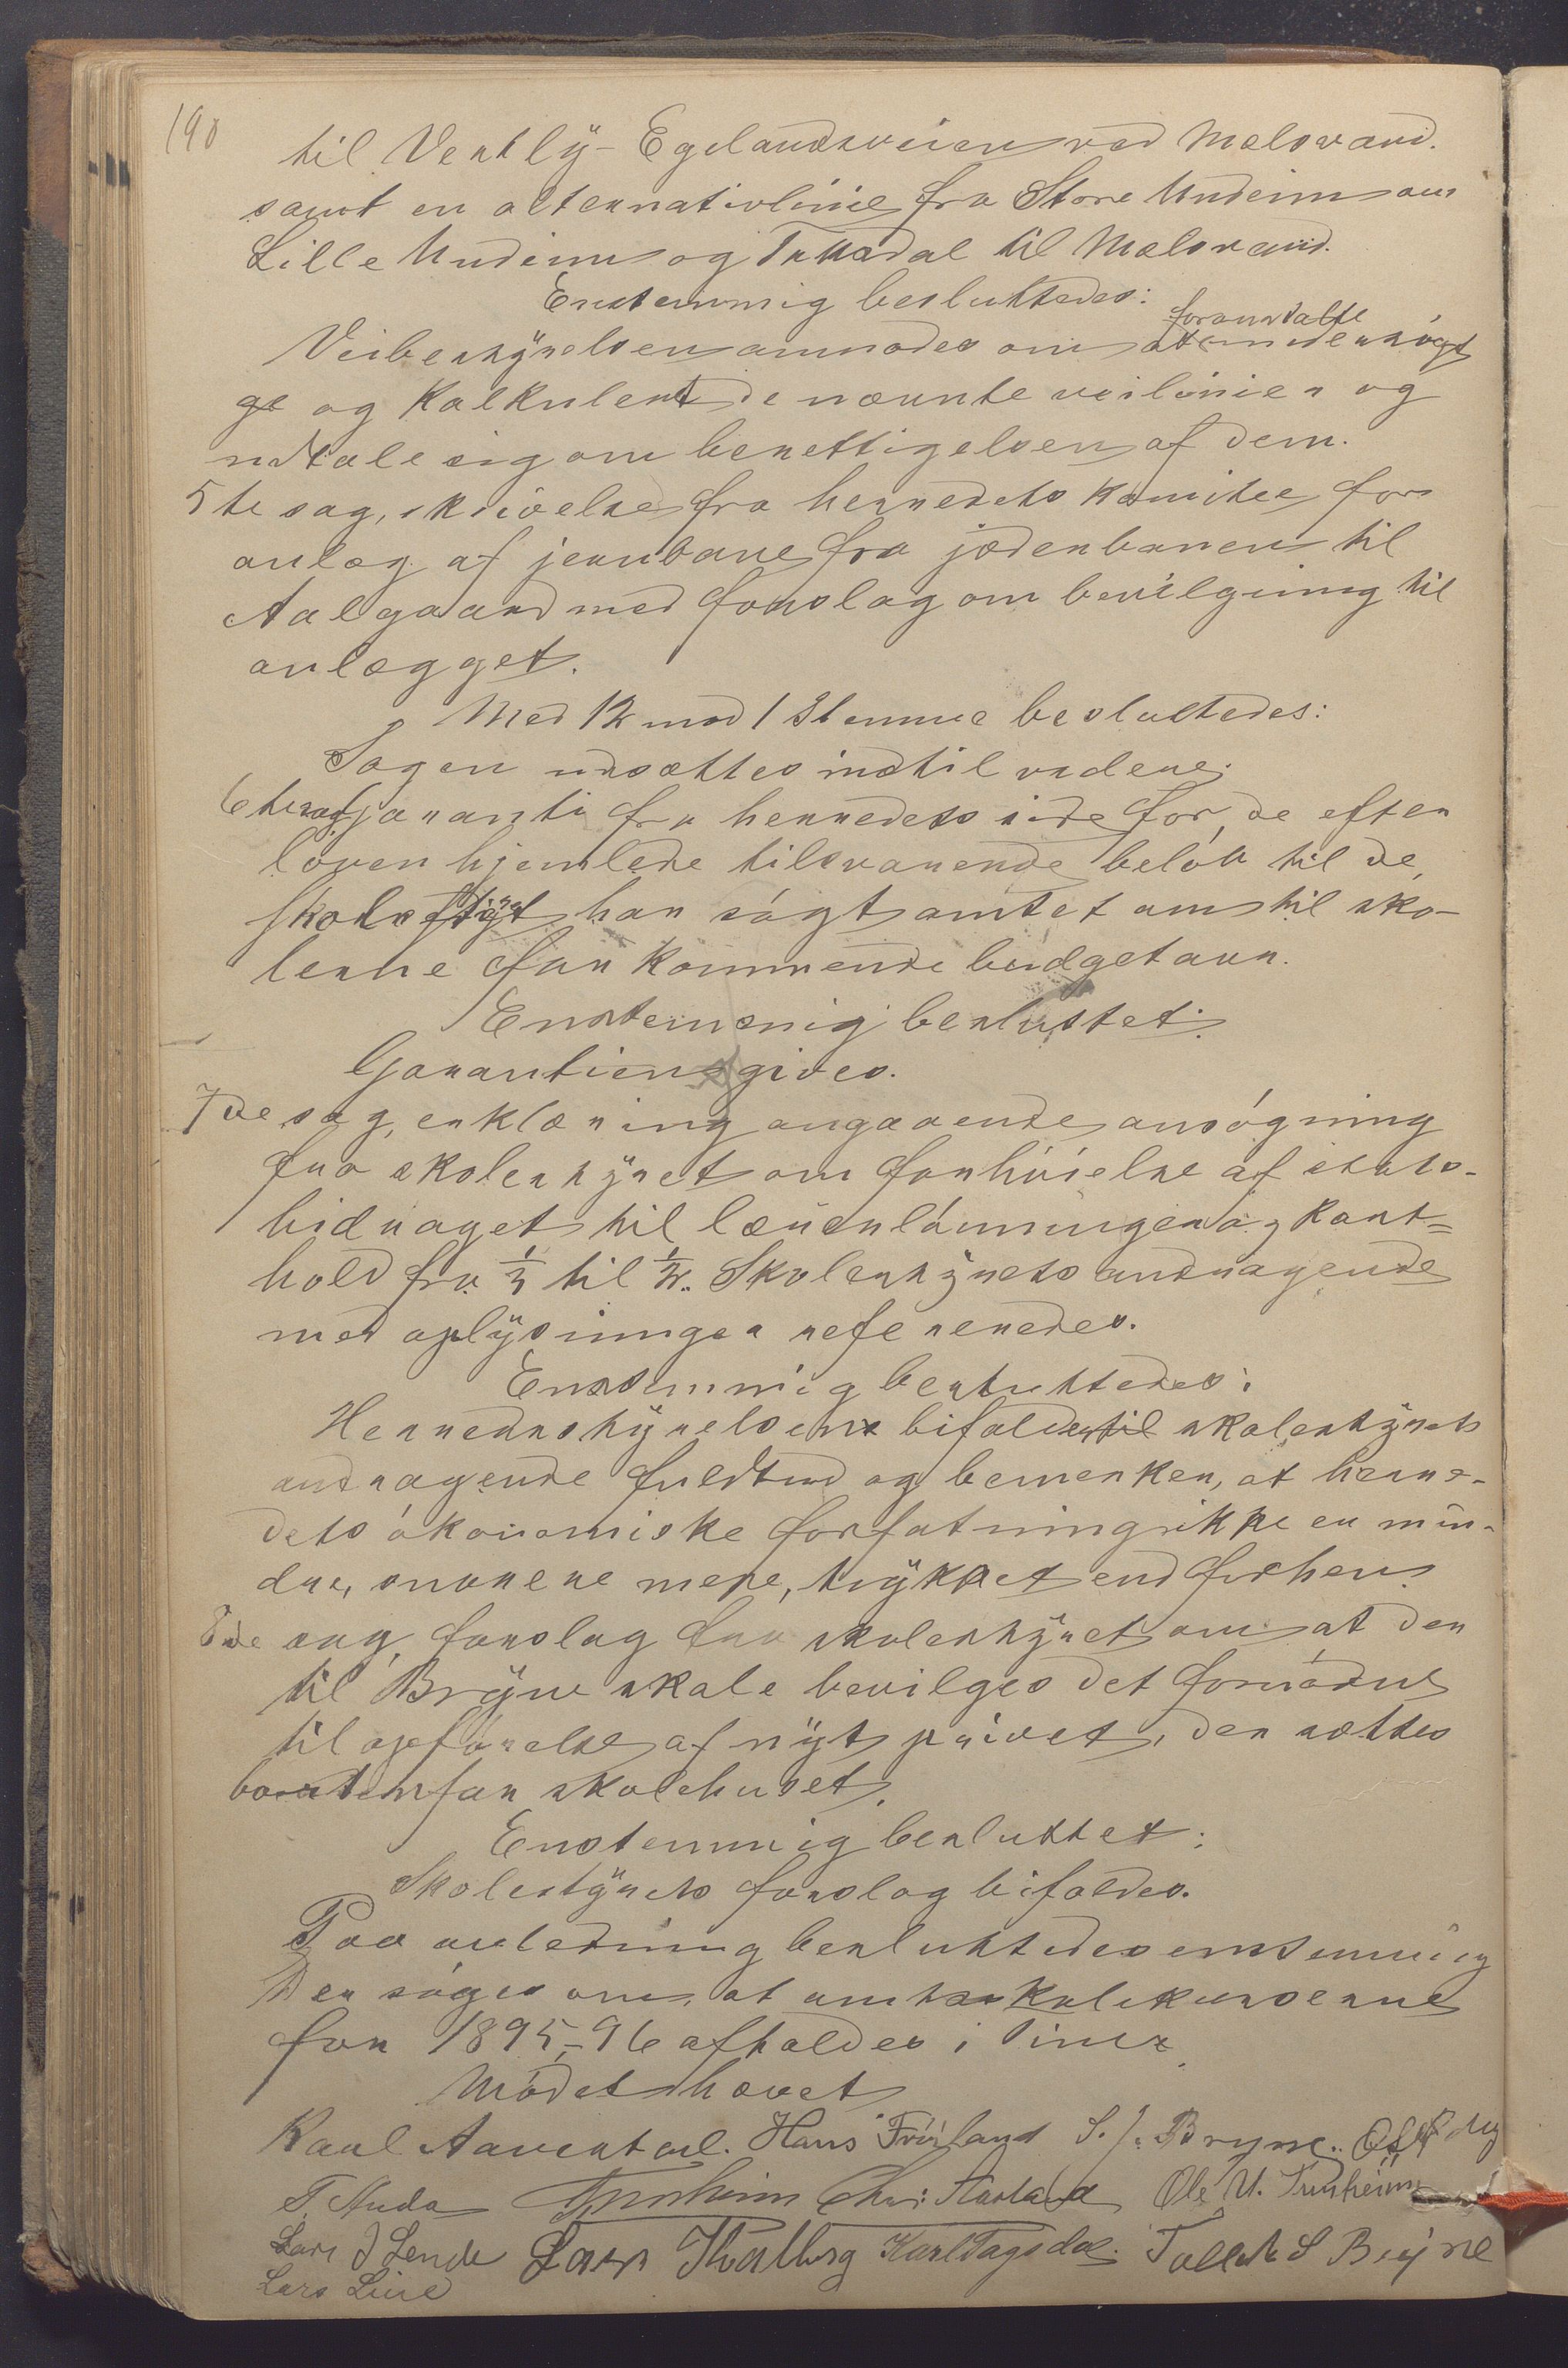 190
til Vestly-Egelandsveien ved Melsvand.
samt en alternativlinie fra Store Undeim om
Lille Undeim og Tussdal til Melsvand.
Enstemmig besluttedes:
foranstalte
Veibestyrelsen anmodes om at undersøgt
ge og kalkulert de nævnte veilinier og
udtale sig om berettigelsen af dem.
5te sag, skrivelse fra herredets komitee for
anlæg af jernbane fra jæderbanen til
Aalgaard med forslag om bevilgning til
anlægget.
Med 12 mod 1 Stemme besluttedes:
Sagen udsættes indtil videre.
6te sag, garanti fra herredets side for de efter
loven hjemlede tilsvarende beløb til de,
skolestyret har søgt amtet om til sko-
lerne for kommende budgetaar.
Enstemmig besluttet:
Garantien gives.
7de sag, erklæring angaaende ansøgning
fra skolestyret om forhøielse af stats-
bidraget til lærerlønninger og kost-
hold fra 1/3 til 1/2. Skolestyrets andragende
med oplysninger refereredes.
Enstemmig besluttedes:
Herredsstyrelsen bifalder til skolestyrets
andragende fuldtud og bemerker, at herre-
dets økonomiske forfatning ikke er min-
dre, snarere mere, trykket end førhen.
8de sag, forslag fra skolestyret om at der
til Bryne skole bevilges det fornødne
til opførelse af nyt privet, der sættes
bortenfor skolehuset.
Enstemmig besluttet:
Skolestyrets forslag bifaldes.
Paa anledning besluttedes enstemmig
Der søges om, at amtsskolekurserne
for 1895-96 afholdes i Time.
Mødet hævet
Karl Aarestad. Hans Frøiland S. J. Bryne.
T. Auda Tunheim Chr: Ole U. Tunheim
Lars J Lende Lars Thalberg Karl Tagsdal. Tollak S Bryne
Lars Line